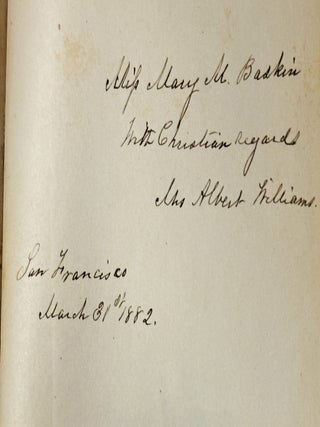 Miſs Mary M. Baskin
With Christian regards
Mrs Albert Williams.
San Francisco
March 31st 1882.